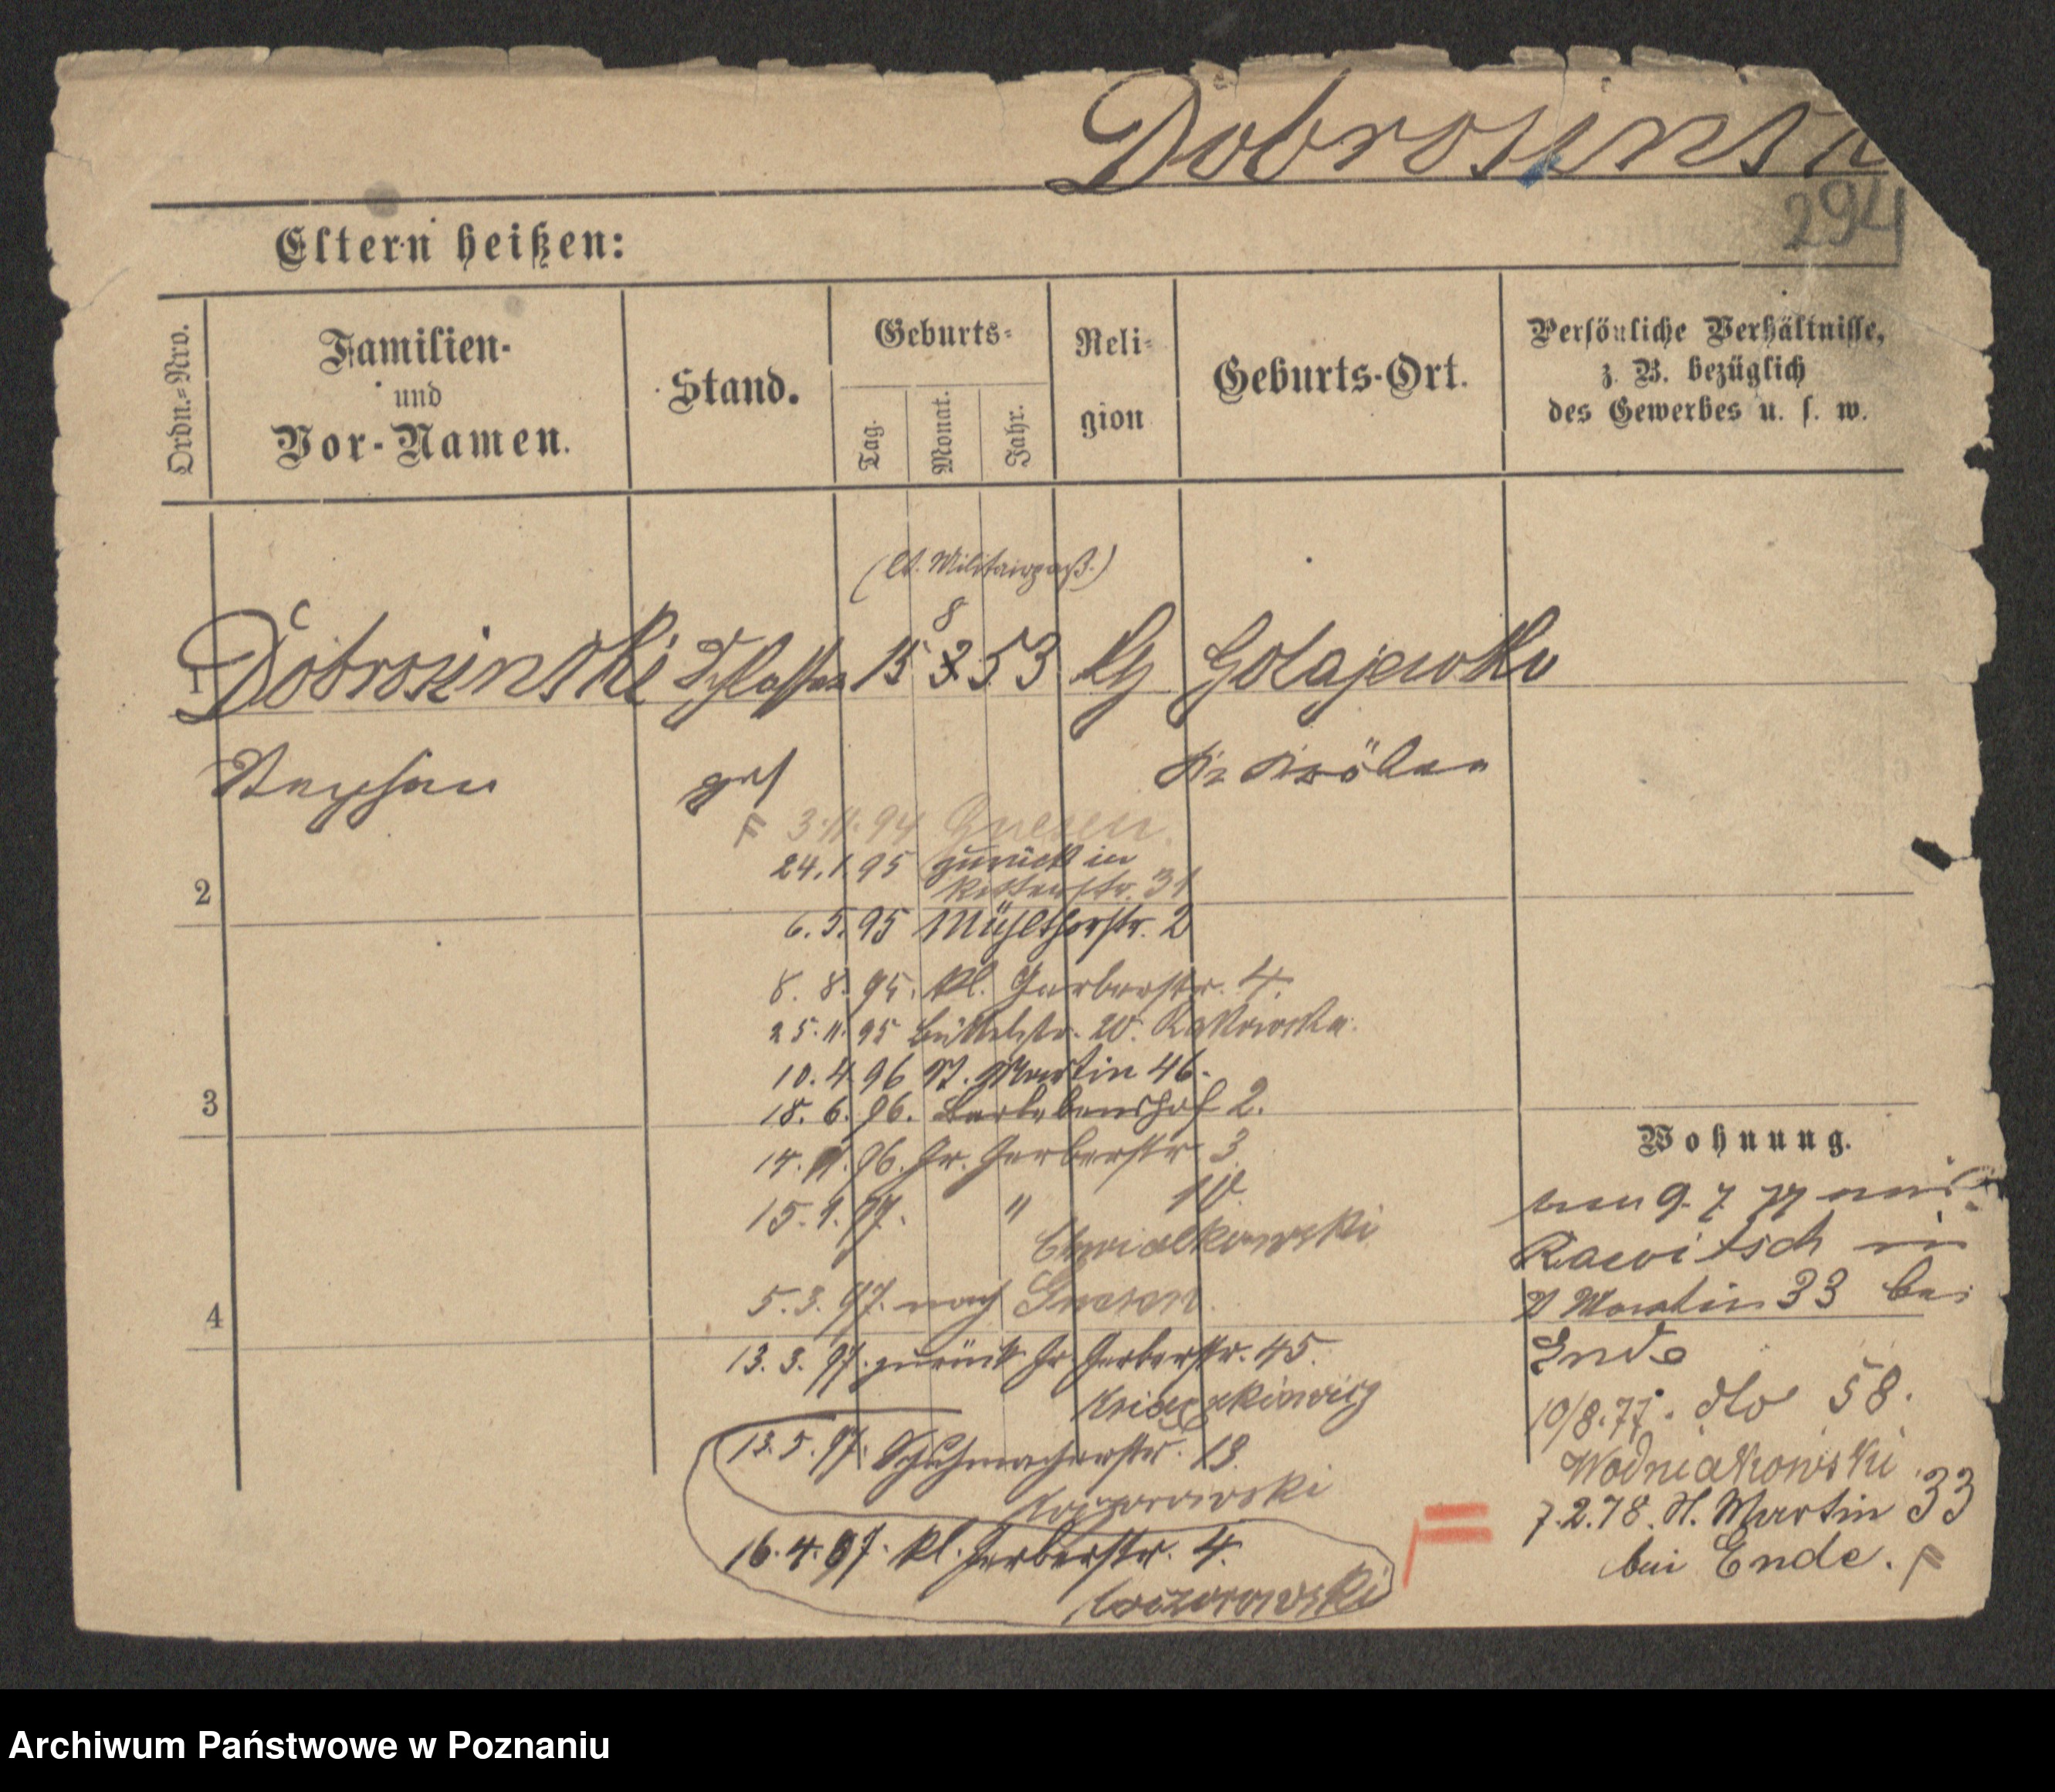 Dobrosinsk
294
Eltern heißen:
Ordn.=Nro.
Familien-
und
Vor-Namen.
Stand.
Geburts=
Tag.
Monat.
Jahr.
Reli=
gion
Geburts-Ort.
Persönliche Verhältnisse,
z. B. bezüglich
des Gewerbes u. s. w.
(lt. Militairpaß.)
8
1 Dobrosinski Schlosser 15 3 53 kg Golajewko
Stephan Kr Kröben
F 3.11.94 Gnesen
24.1.95 zurück in
2 31
6.5.95 Mühlthorstr. 2
8.8.95. Kl. Gerberstr. 4.
25.11.95 Büttelstr. 20.
10.4.96 St. Martin 46.
3 18.6.96. Barlebenshof 2.
14.11.96. Gr. Gerberstr. 3
15.1.97. " 10.
Chwialkowski
4 5.3.97. nach Gnesen.
13.3.97. zurück Gr. Gerberstr. 45.
13.5.97. Schuhmacherstr. 13.
16.4.97. Kl. Gerberstr. 4.
Wohnung.
9.7.77 aus
Rawitsch in
St Martin 33 bei
Ende
10/8.77. dto 58.
Wodniakowski
7.2.78. St. Martin 33
bei Ende. F
Archiwum Państwowe w Poznaniu